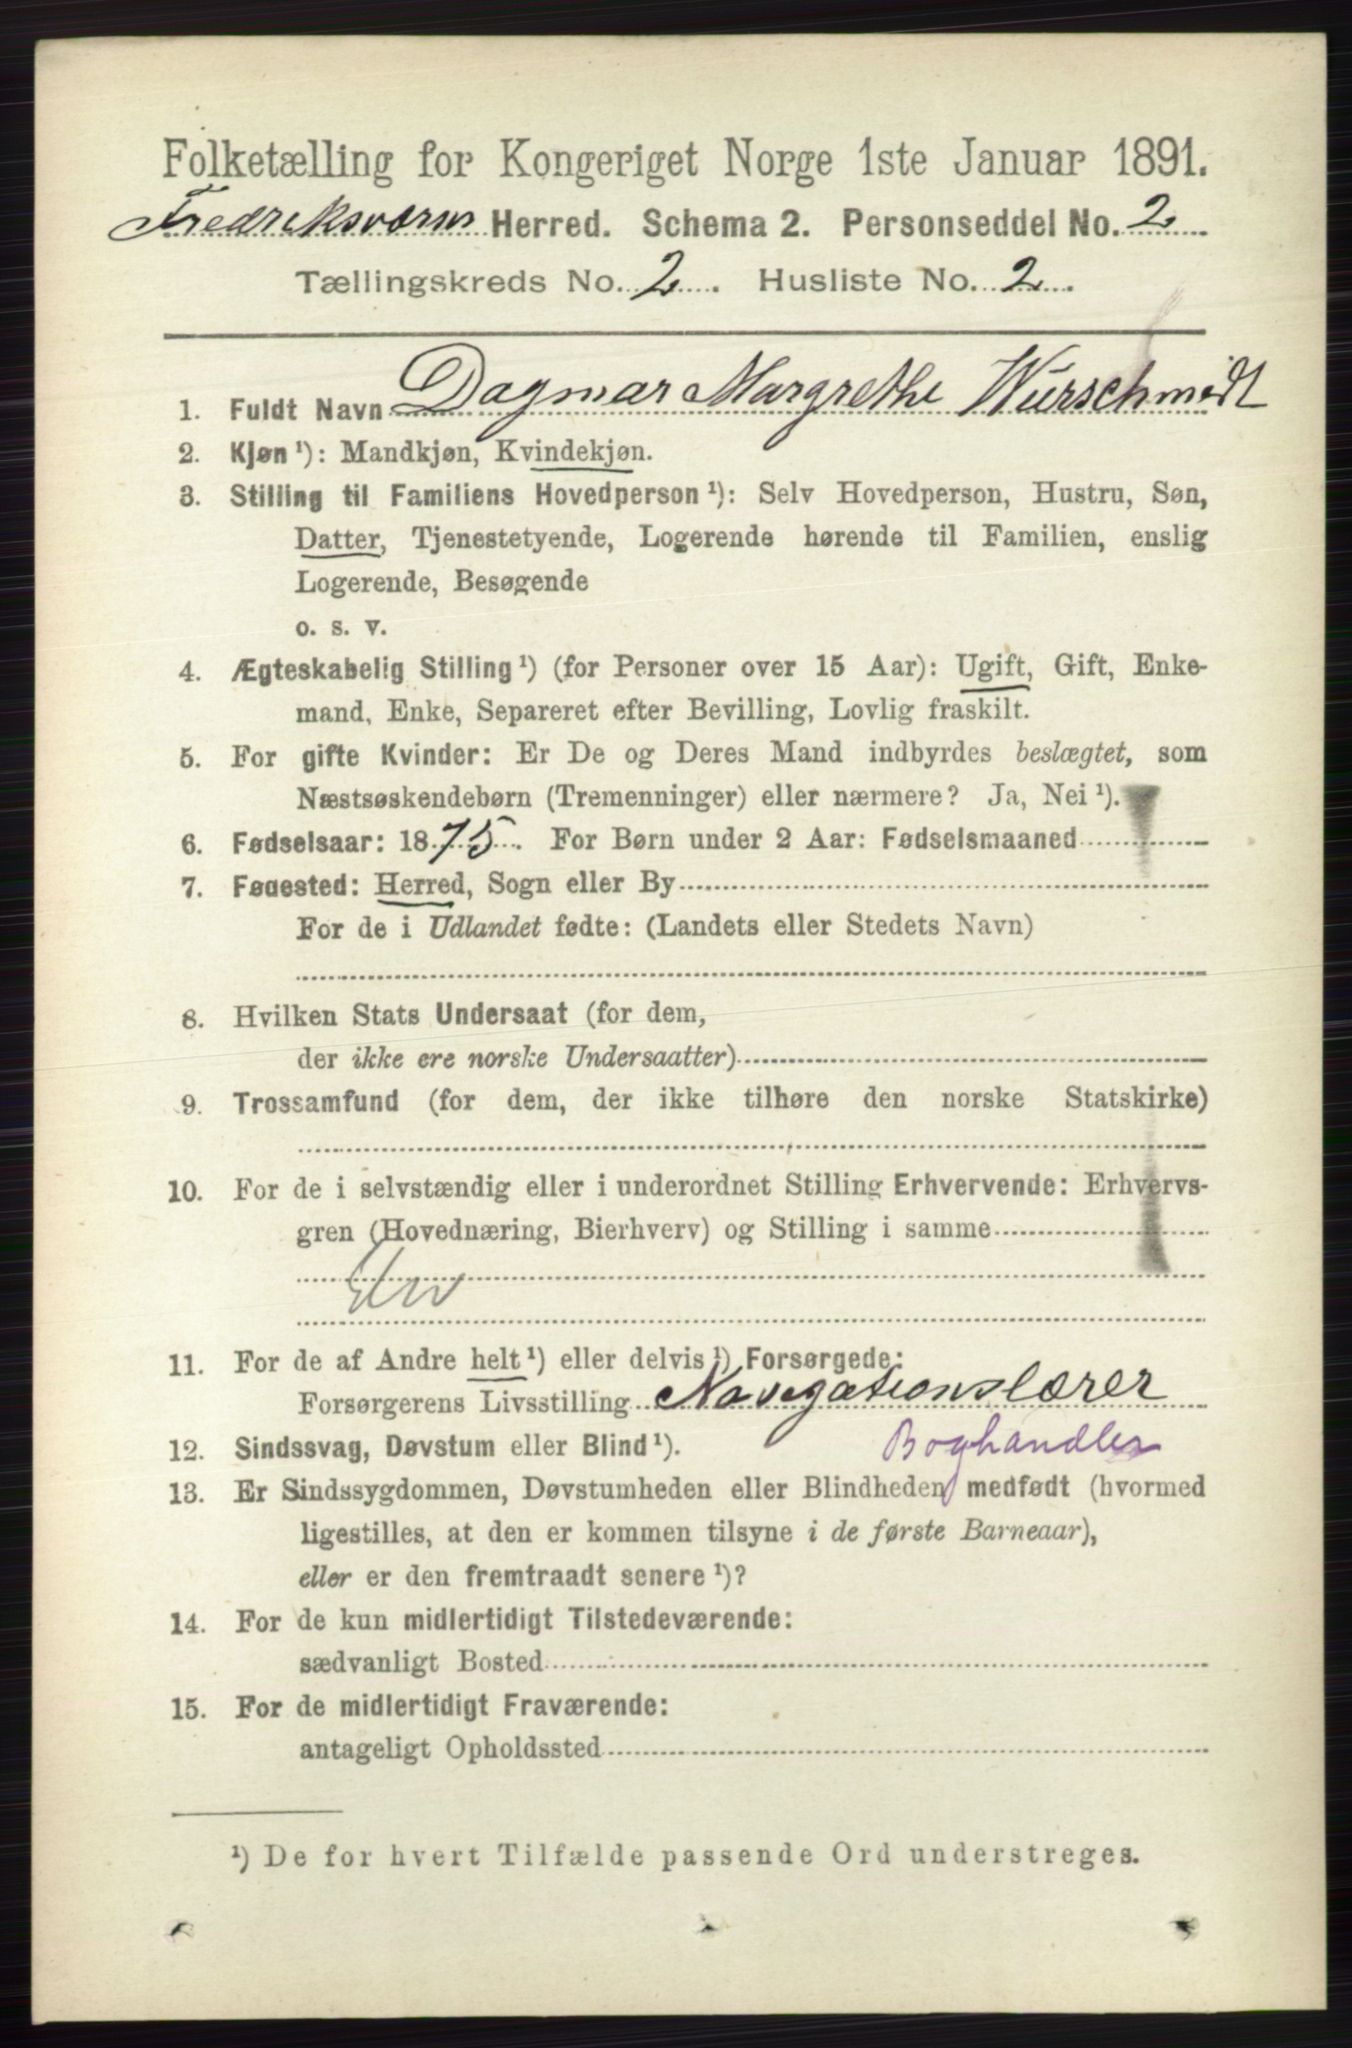 Folketælling for Kongeriget Norge 1ste Januar 1891.
Fredriksværns Herred. Schema 2. Personseddel No. 2
Tællingskreds No. 2. Husliste No. 2.
1. Fuldt Navn Dagmar Margrethe Würschmidt
2. Kjøn ¹): Mandkjøn, Kvindekjøn.
3. Stilling til Familiens Hovedperson ¹): Selv Hovedperson, Hustru, Søn,
Datter, Tjenestetyende, Logerende hørende til Familien, enslig
Logerende, Besøgende
o. s. v.
4. Ægteskabelig Stilling ¹) (for Personer over 15 Aar): Ugift, Gift, Enke-
mand, Enke, Separeret efter Bevilling, Lovlig fraskilt.
5. For gifte Kvinder: Er De og Deres Mand indbyrdes beslægtet, som
Næstsøskendebørn (Tremenninger) eller nærmere? Ja, Nei ¹).
6. Fødselsaar: 1875. For Børn under 2 Aar: Fødselsmaaned
7. Fødested: Herred, Sogn eller By
For de i Udlandet fødte: (Landets eller Stedets Navn)
8. Hvilken Stats Undersaat (for dem,
der ikke ere norske Undersaatter)
9. Trossamfund (for dem, der ikke tilhøre den norske Statskirke)
10. For de i selvstændig eller i underordnet Stilling Erhvervende: Erhvervs-
gren (Hovednæring, Bierhverv) og Stilling i samme
11. For de af Andre helt ¹) eller delvis ¹) Forsørgede:
Forsørgerens Livsstilling Navigationslærer
Boghandler
12. Sindssvag, Døvstum eller Blind ¹).
13. Er Sindssygdommen, Døvstumheden eller Blindheden medfødt (hvormed
ligestilles, at den er kommen tilsyne i de første Barneaar),
eller er den fremtraadt senere ¹)?
14. For de kun midlertidigt Tilstedeværende:
sædvanligt Bosted
15. For de midlertidigt Fraværende:
antageligt Opholdssted
¹) De for hvert Tilfælde passende Ord understreges.